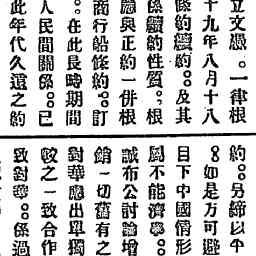 立文憑。一律根
十九年八月十八
條約續約。及其
係續約性質。根
應與正約一併根
商行船條約。訂
。在此長時期間
人民間關係。已
此年代久遠之約
約。另締以平
。如是方可避
目下中國情形
不能濟
誠布公討議增
銷一切舊有之
對華應出單獨
較之一致合作
致對華。係過